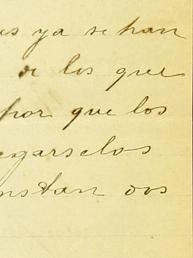 us ya se han
de los que
por que los
egarselos
nstan dos